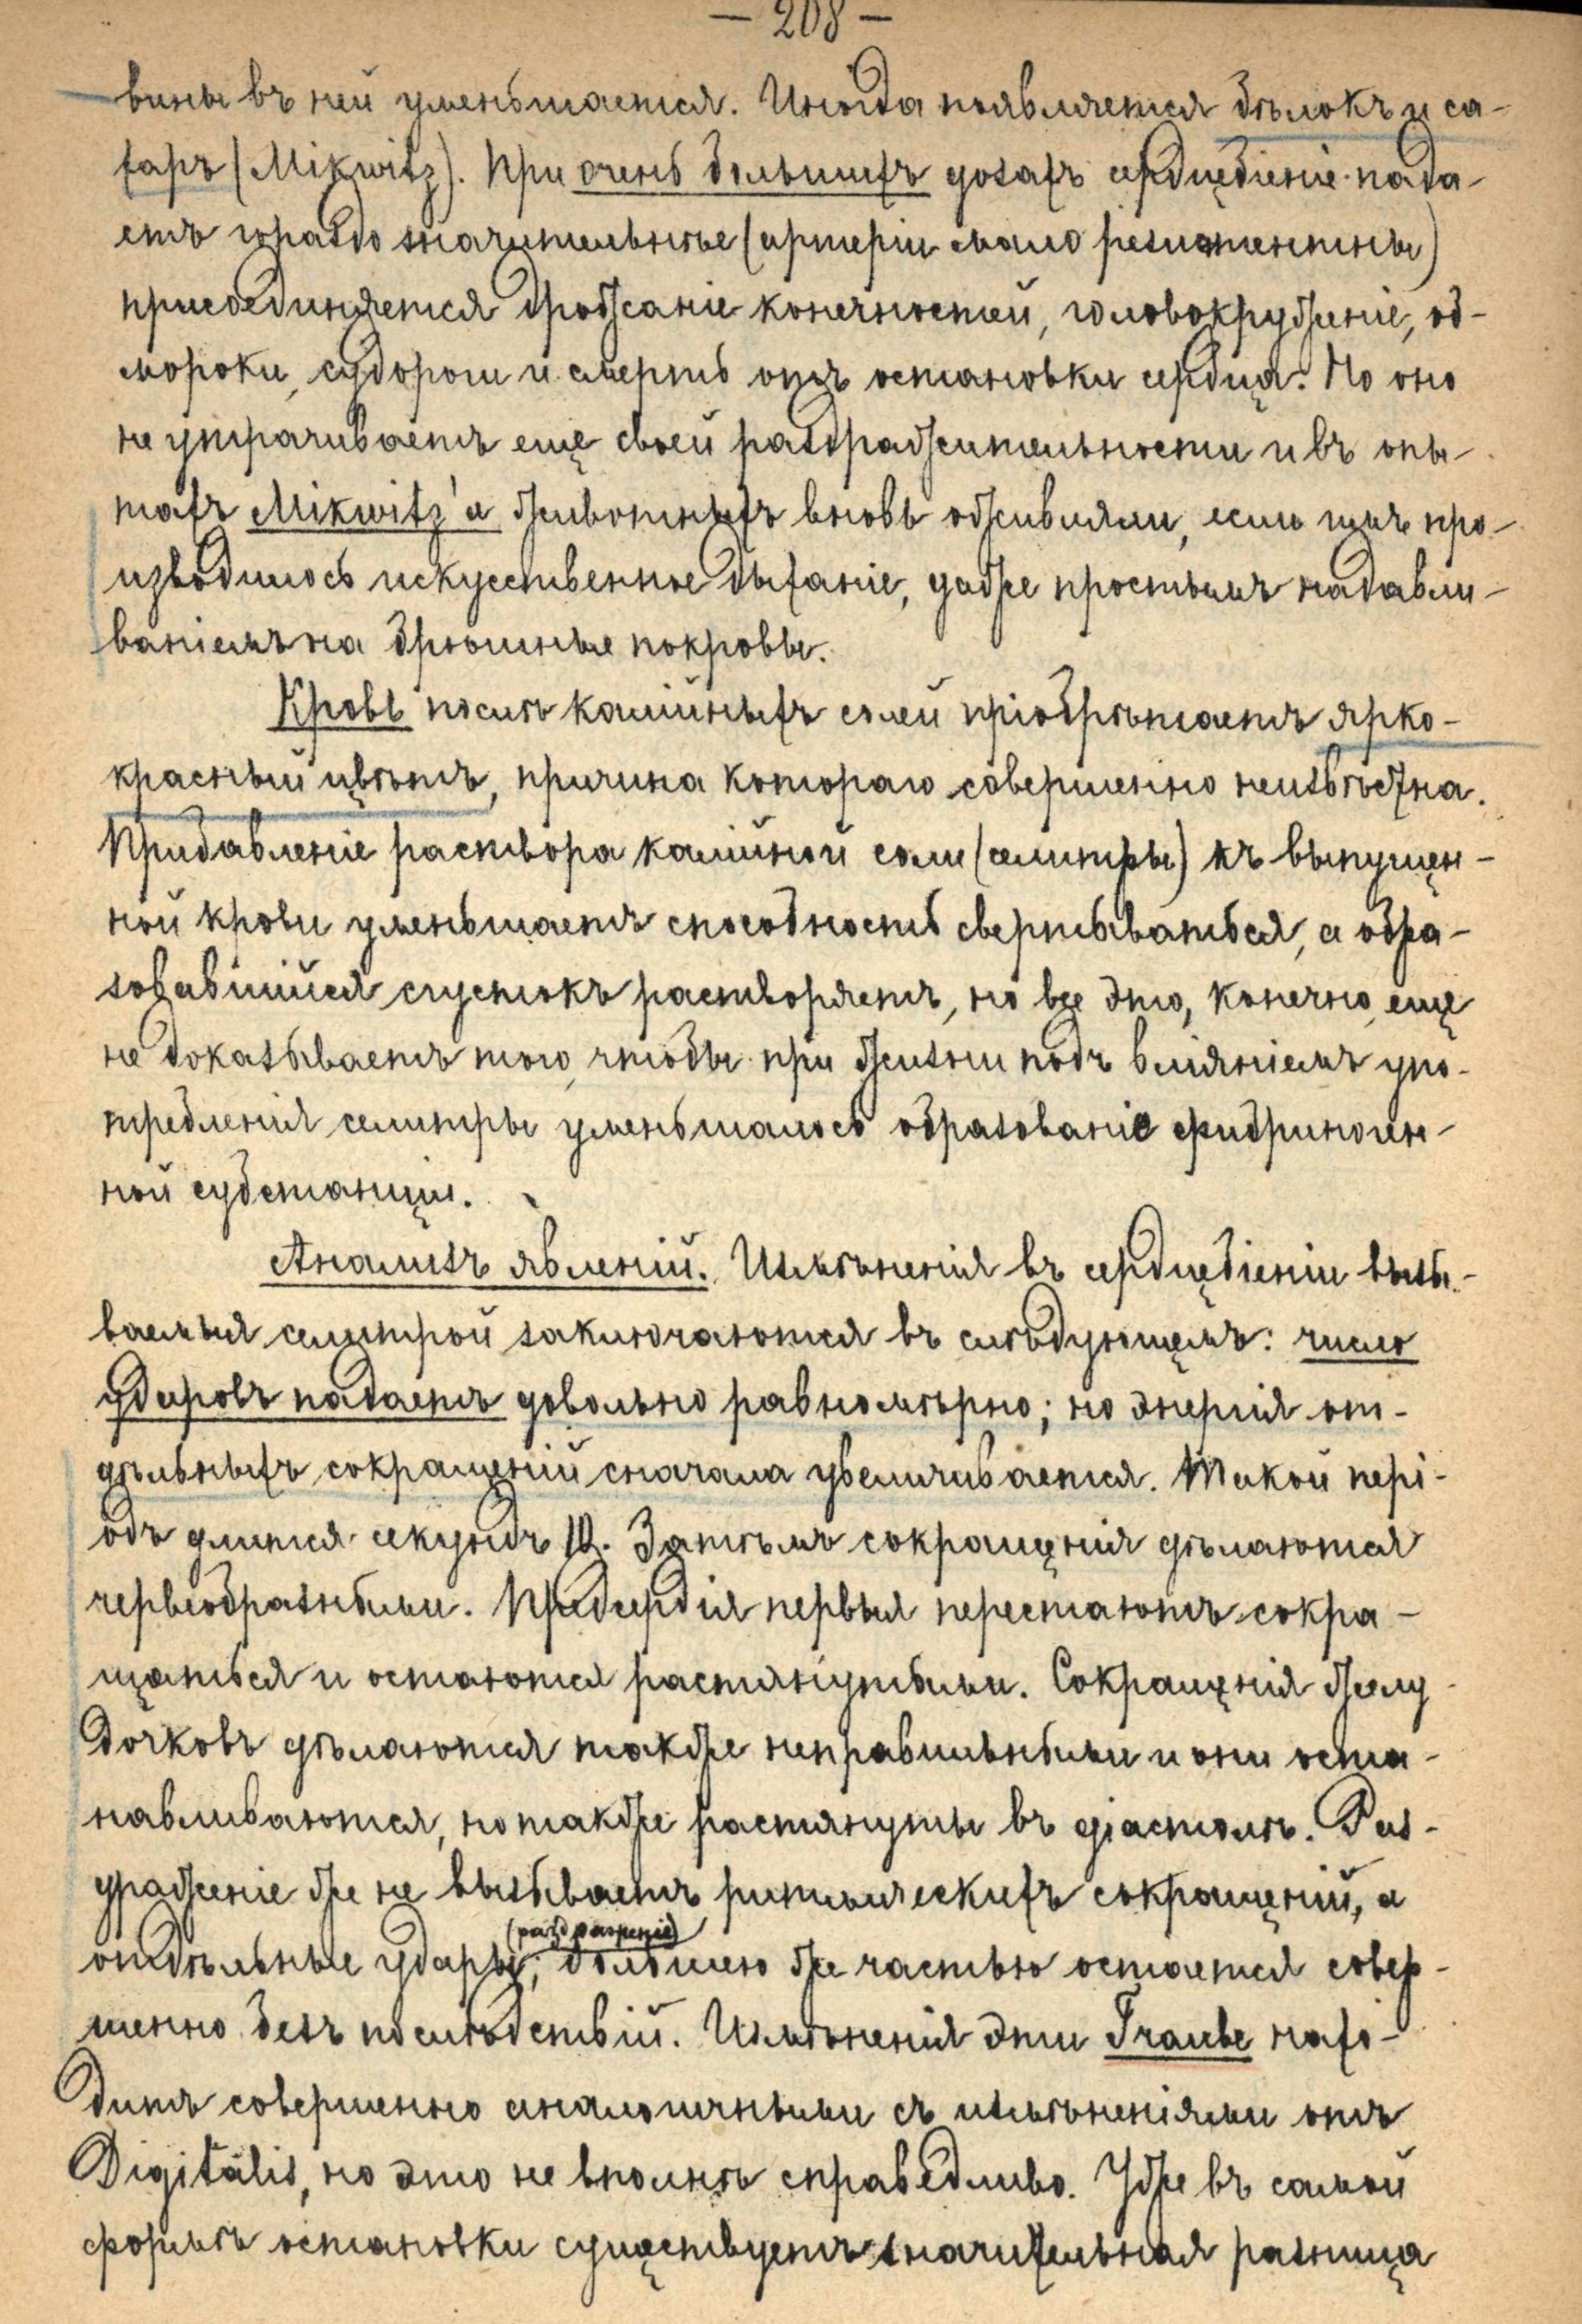 — 208 —
вины въ ней уменьшается. Иногда появляется бѣлокъ и са-
харъ (Mikwitz). При очень большихъ дозахъ сердцебіеніе пада-
етъ гораздо значительнѣе (артеріи мало резистентны)
присоединяется дрожаніе конечностей, головокруженіе, об-
мороки, судороги и смерть отъ остановки сердца. Но оно
не утрачиваетъ еще своей раздражительности и въ опы-
тахъ Mikwitz'а животныхъ вновь оживляли, если имъ про-
изводилось искусственное дыханіе, даже простымъ надавли-
ваніемъ на брюшные покровы.
Кровь послѣ калійныхъ солей пріобрѣтаетъ ярко-
красный цвѣтъ, причина котораго совершенно неизвѣстна.
Придавленіе раствора калійной соли (селитры) къ выпущен-
ной крови уменьшаетъ способность свертываться, а обра-
зовавшійся сгустокъ растворяетъ, но все это, конечно, еще
не доказываетъ того, чтобы при жизни подъ вліяніемъ упо-
требленія селитры уменьшалось образованіе фибриноген-
ной субстанціи.
Анализъ явленій. Измѣненія въ сердцебіеніи вызы-
ваемыя селитрой заключаются въ слѣдующемъ: число
ударовъ падаетъ довольно равномѣрно; но энергія от-
дѣльныхъ сокращеній сначала увеличивается. Такой пері-
одъ длится секундъ 10. Затѣмъ сокращенія дѣлаются
червеобразными. Предсердія первыя перестаютъ сокра-
щаться и остаются растянутыми. Сокращенія желу-
дочковъ дѣлаются также неправильными и они оста-
навливаются, но также растянуты въ діастолѣ. Раз-
драженіе же не вызываетъ ритмическихъ сокращеній, а
(раздраженіе)
отдѣльные удары; большею же частью остается совер-
шенно безъ послѣдствій. Измѣненія эти Traube нахо-
дитъ совершенно аналогичными съ измѣненіями отъ
Digitalis, но это не вполнѣ справедливо. Уже въ самой
формѣ остановки существуетъ значительная разница